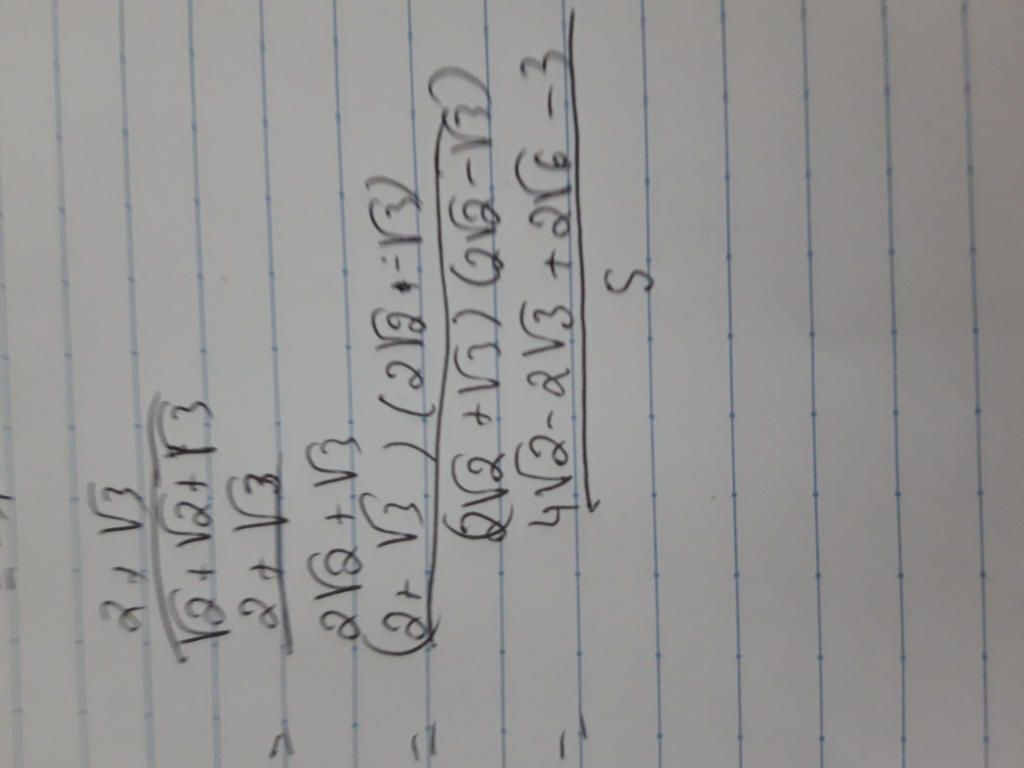 2 + √3
√2 + √2 + √3
= 2 + √3
2√2 + √3
= (2 + √3) (2√2 - √3)
(2√2 + √3) (2√2 - √3)
= 4√2 - 2√3 + 2√6 - 3
5